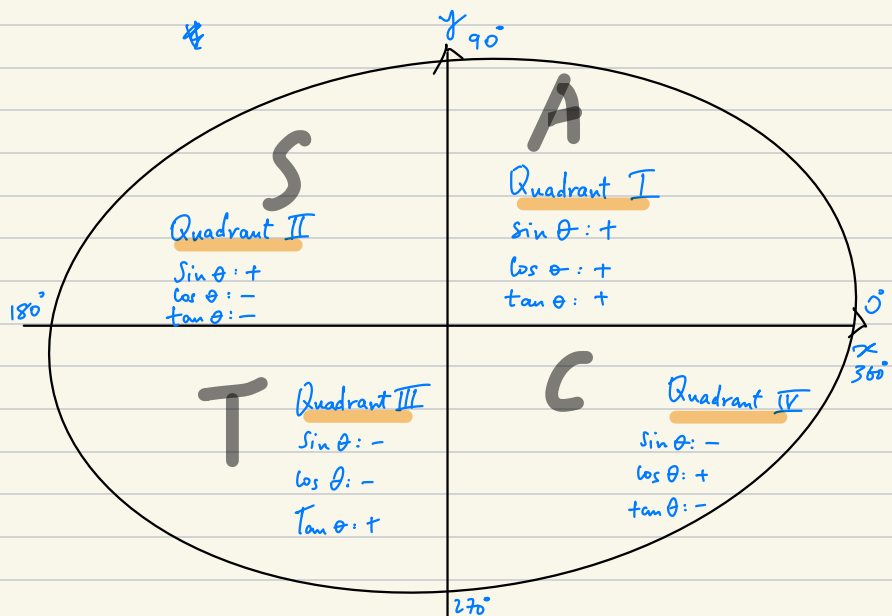 y
90°
S
A
Quadrant II
Sin θ: +
cos θ: -
tan θ: -
Quadrant I
sin θ: +
cos θ: +
tan θ: +
180°
0°
x
360°
T
C
Quadrant III
sin θ: -
cos θ: -
Tan θ: +
Quadrant IV
sin θ: -
cos θ: +
tan θ: -
270°